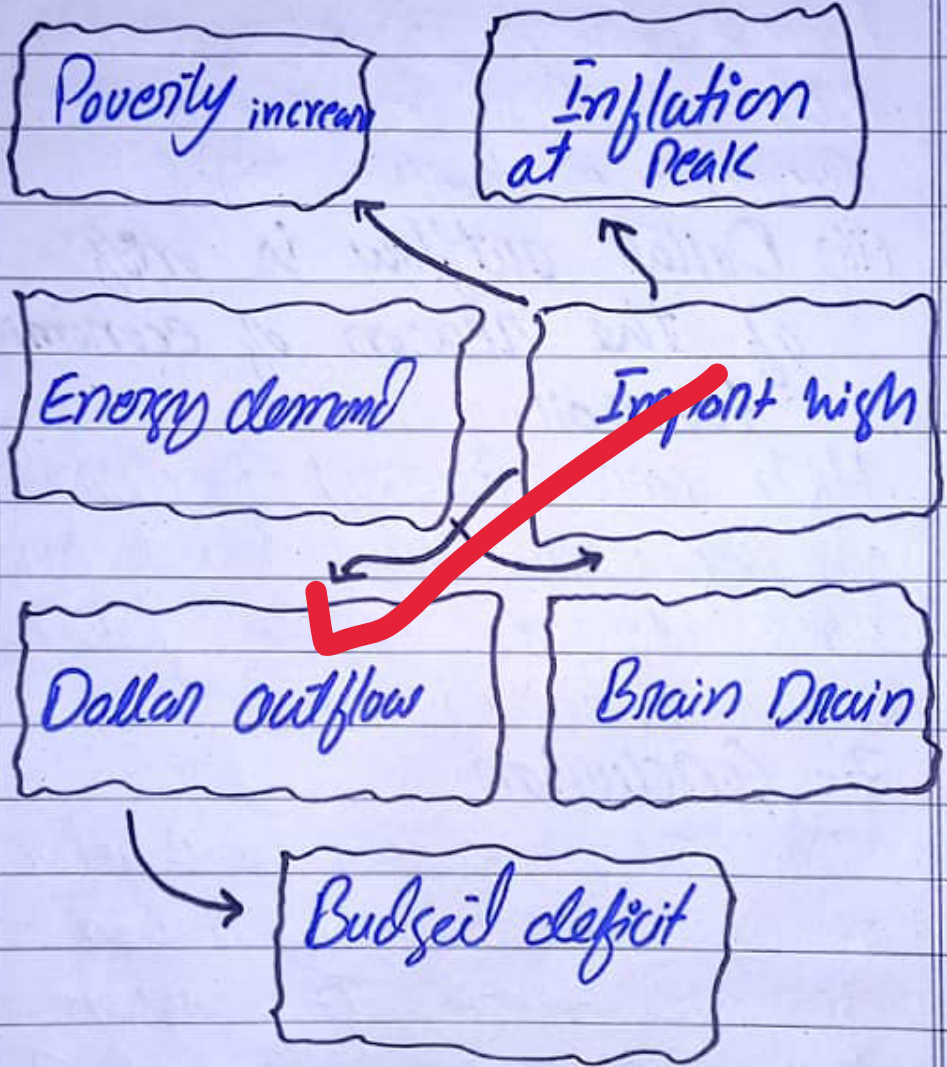 Poverty increase
Inflation
at Peak
Energy demand
Import high
Dollar outflow
Brain Drain
Budget deficit